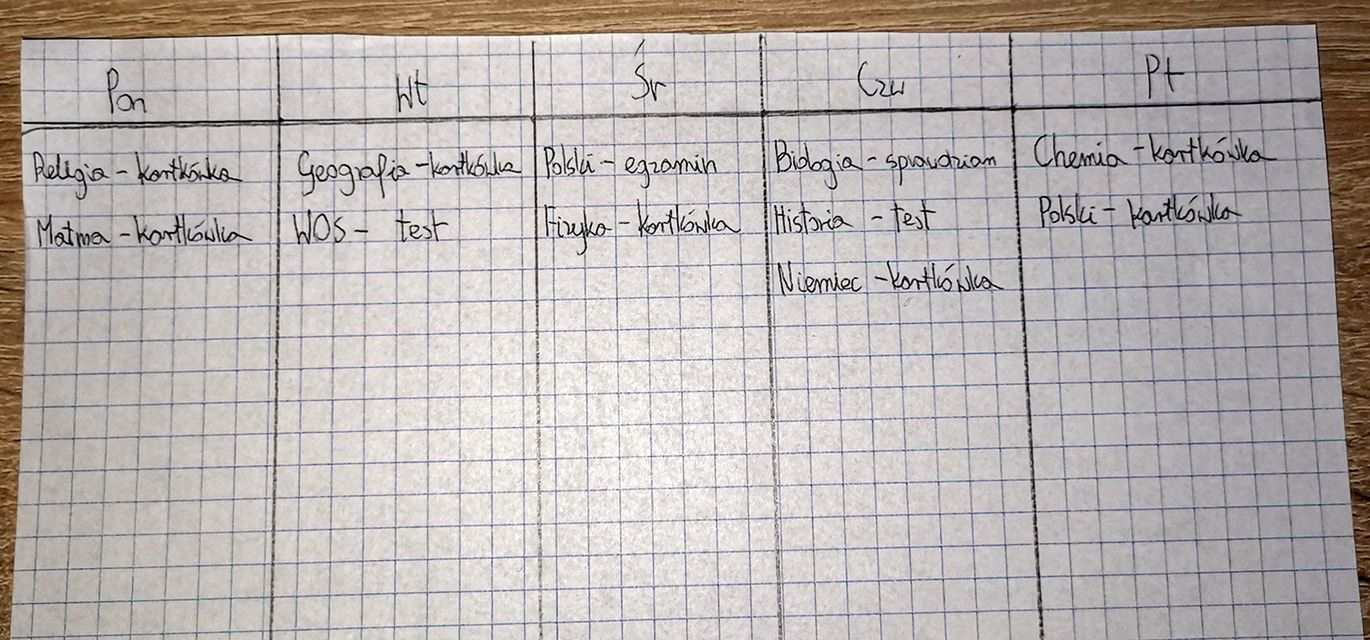 Pon
Wt
Śr
Czw
Pt
Religia - kartkówka
Matma - kartkówka
Geografia - kartkówka
WOS - test
Polski - egzamin
Fizyka - kartkówka
Biologia - sprawdzian
Historia - test
Niemiec - kartkówka
Chemia - kartkówka
Polski - kartkówka